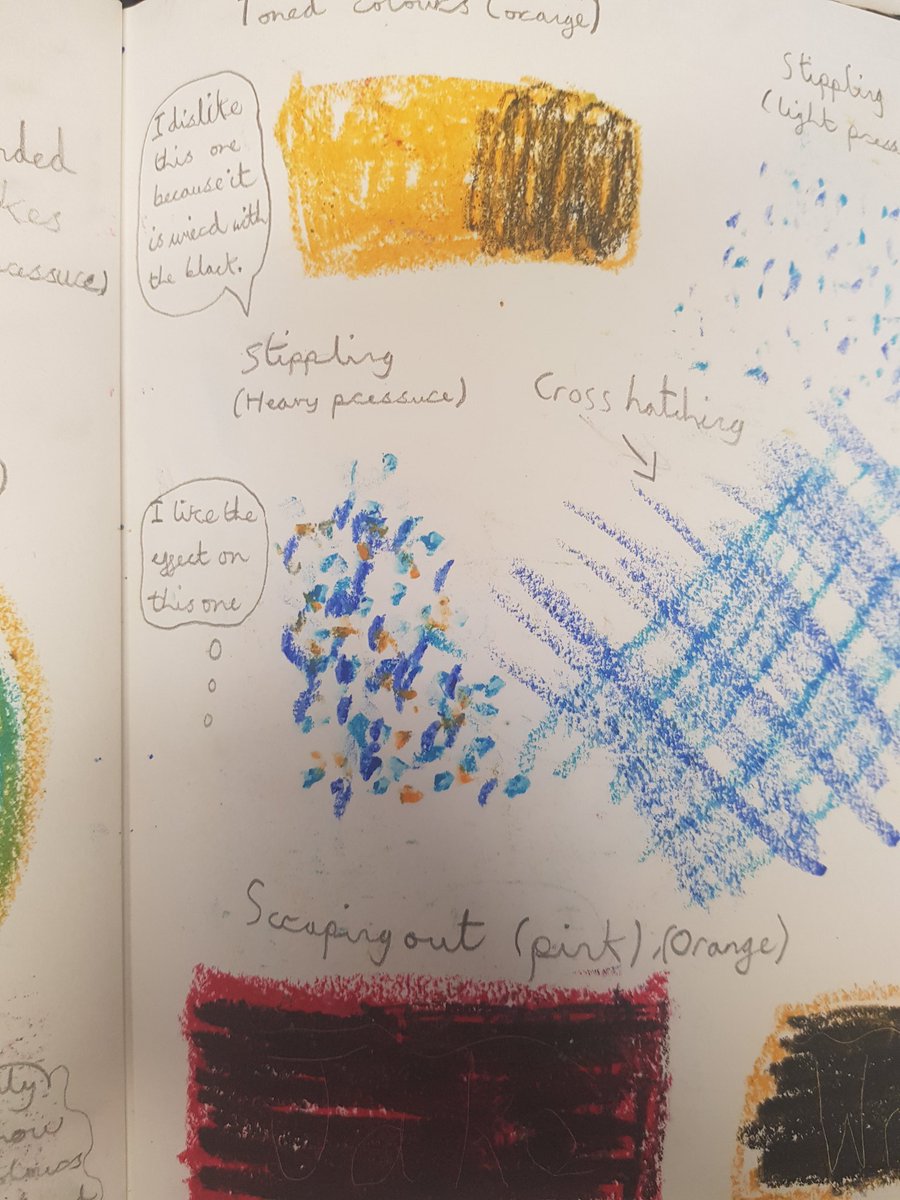 Toned colours (orange)
I dislike
this one
because it
is wierd with
the black.
Stippling
(light press
nded
kes
pressure)
Stippling
(Heavy pressure)
Cross hatching
I like the
effect on
this one
Scraping out (pink), (Orange)
Jake
ity
now